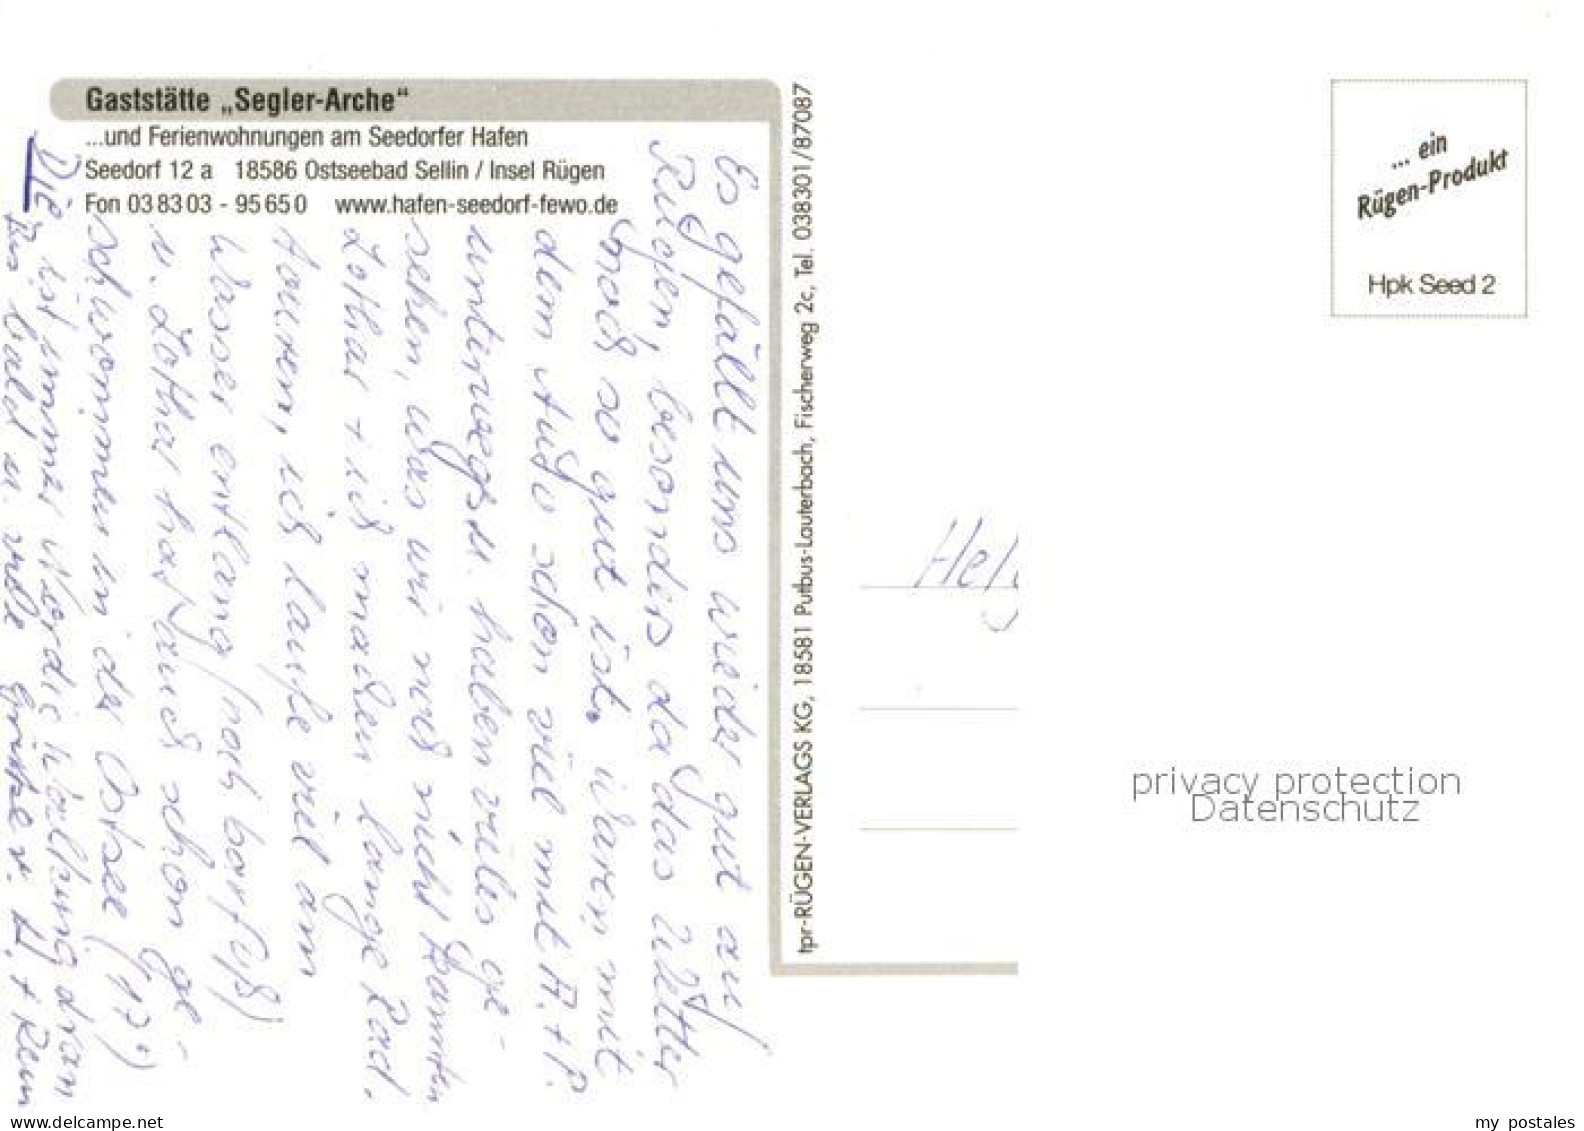 Gaststätte „Segler-Arche“
...und Ferienwohnungen am Seedorfer Hafen
Seedorf 12 a 18586 Ostseebad Sellin / Insel Rügen
Fon 03 83 03 - 95 65 0 www.hafen-seedorf-fewo.de
Es gefällt uns wieder gut auf
Rügen, besonders da das Wetter
noch so gut ist. Waren mit
dem Auto schon viel mit A. + P.
unterwegs u. haben viles ge-
sehen, was wir noch nicht kannten
Lothar + ich machen lange Rad.
touren, ich laufe viel am
Wasser entlang (noch barfuß)
u. Lothar hat auch schon ge-
schwommen in der Ostsee (17°)
Die ist immer
Bis bald u. viele Grüße v. H. +
tpr-RÜGEN-VERLAGS KG, 18581 Putbus-Lauterbach, Fischerweg 2c, Tel. 038301/87087
... ein
Rügen-Produkt
Hpk Seed 2
Helg
privacy protection
Datenschutz
delcampe.net
my postales